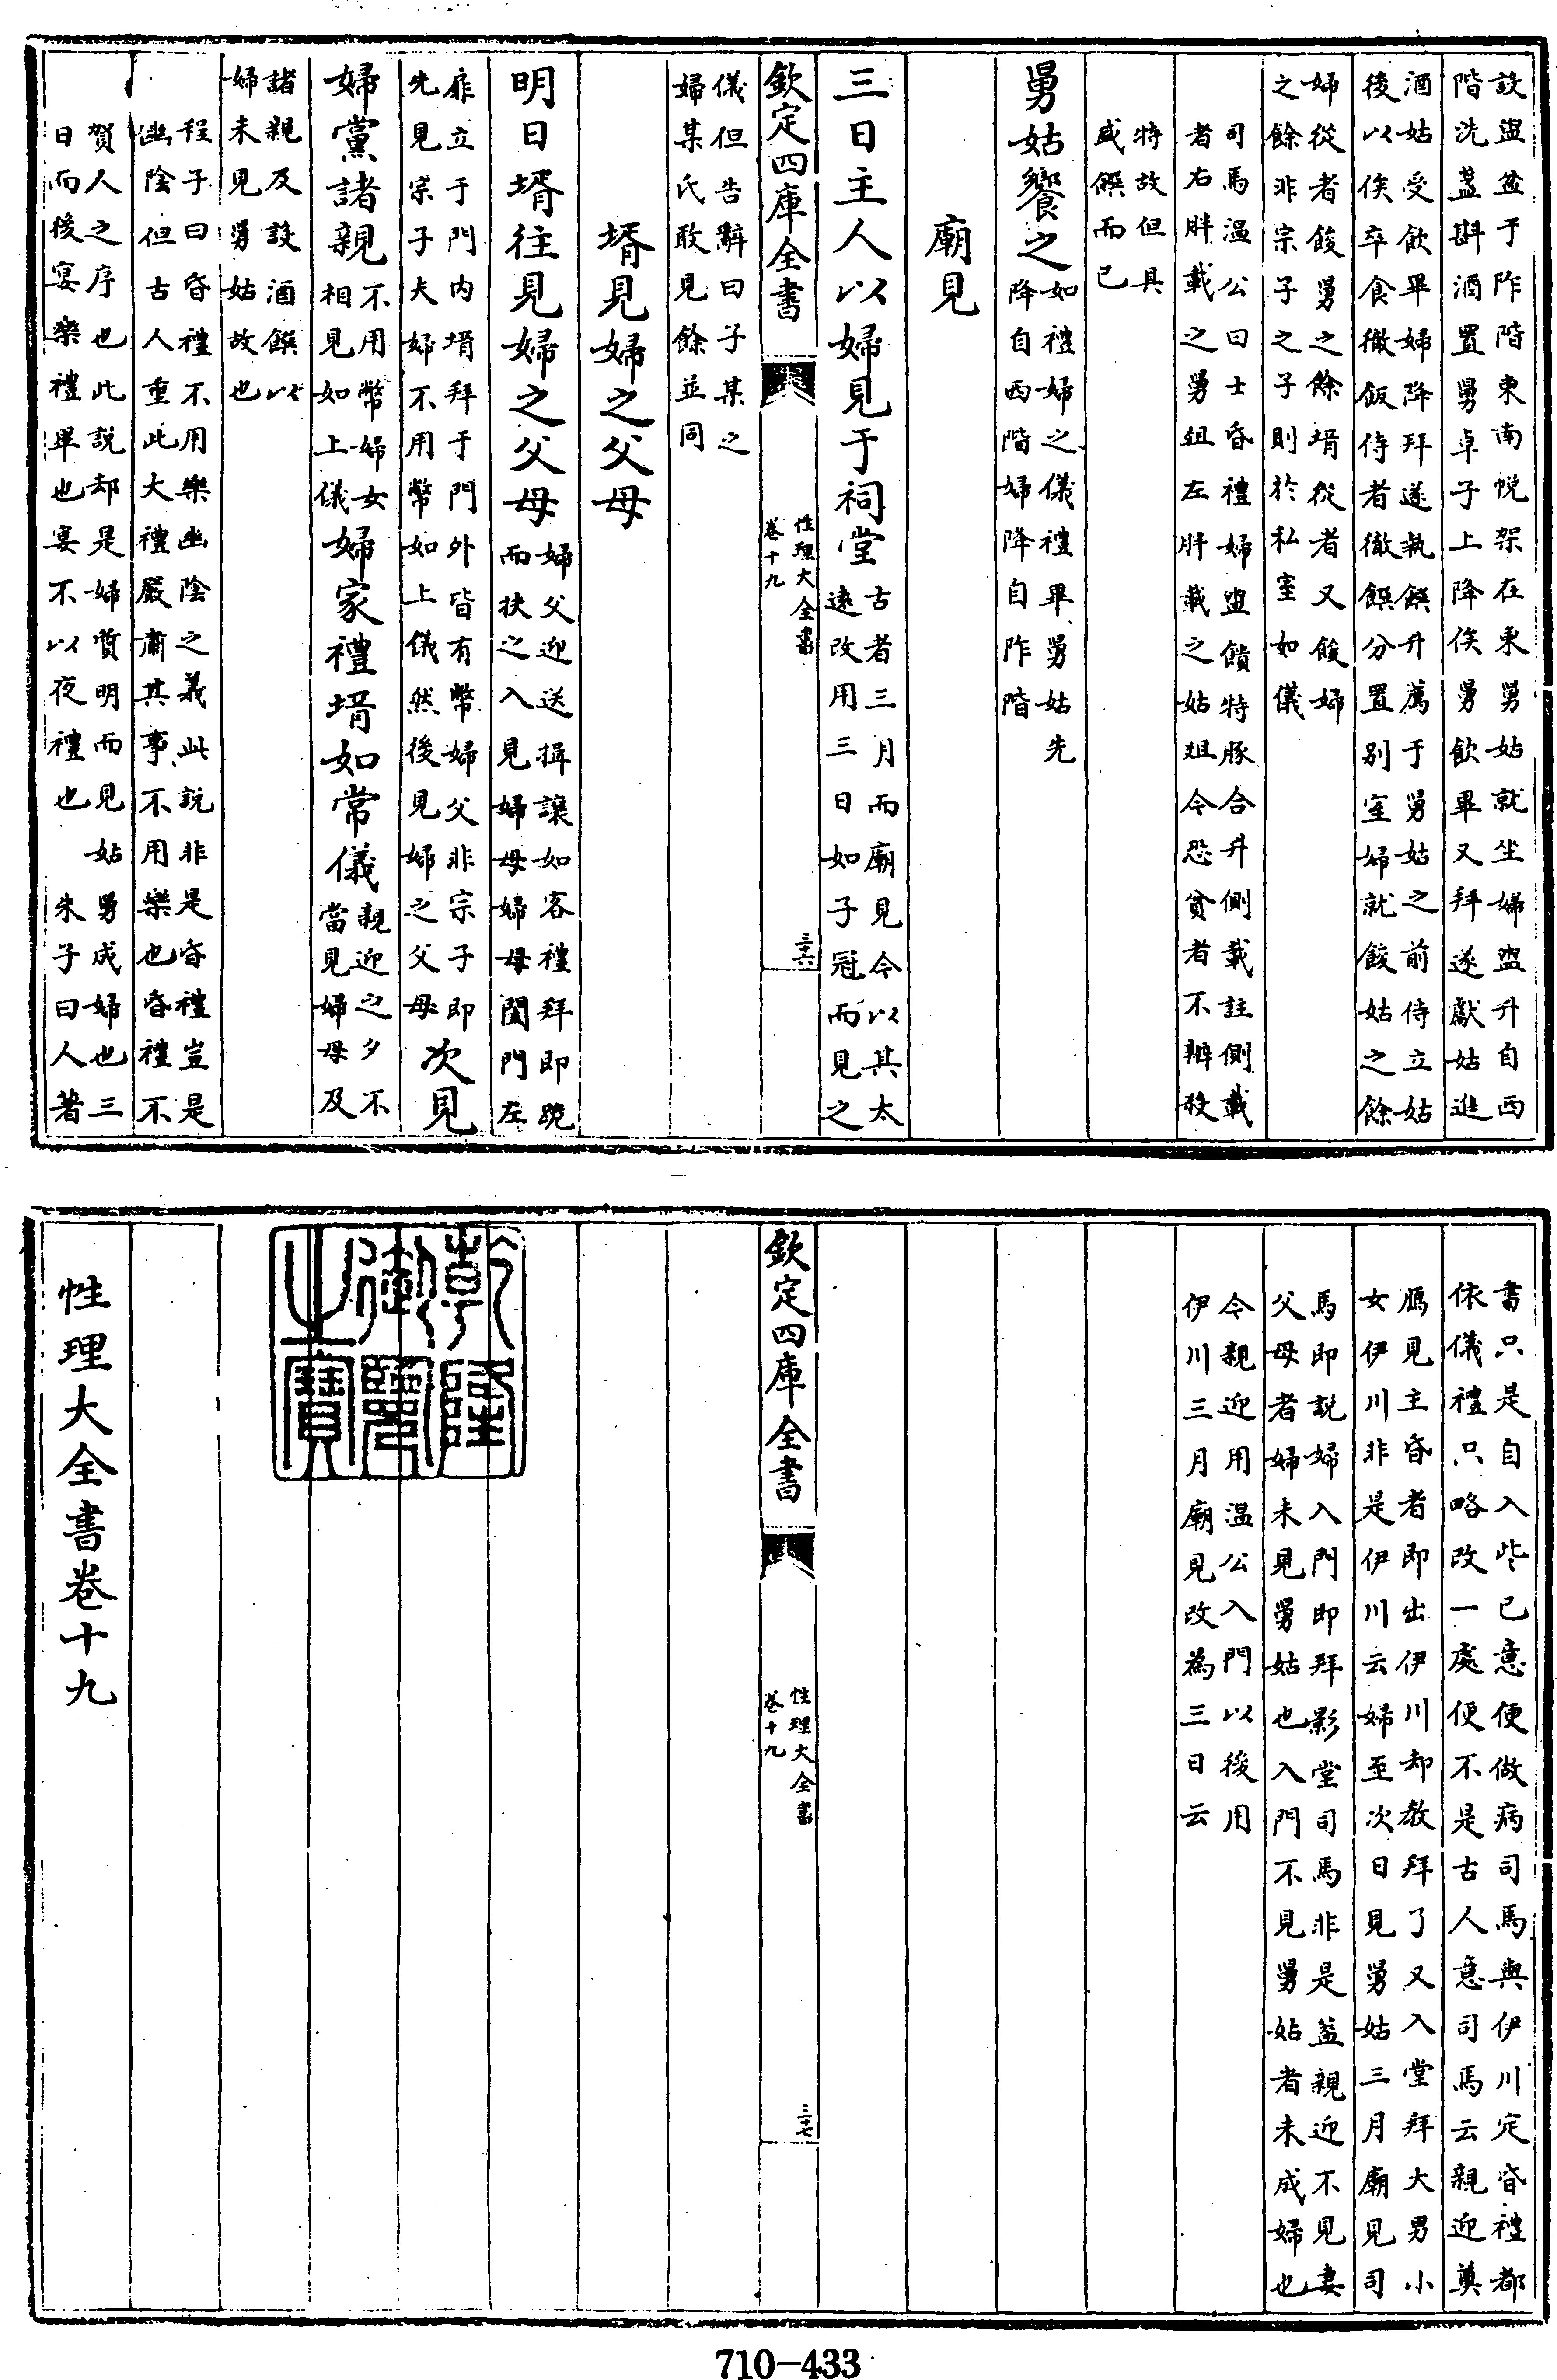 設盥盆于阼階東南帨架在東舅姑就坐婦盥升自西
階洗盞斟酒置舅卓子上降俟舅飲畢又拜遂獻姑進
酒姑受飲畢婦降拜遂執饌升薦于舅姑之前侍立姑
後以俟卒食徹飯侍者徹饌分置别室婦就餕姑之餘
婦從者餕舅之餘壻從者又餕婦
之餘非宗子之子則於私室如儀
司馬温公曰士昏禮婦盥饋特豚合升側載註側載
者右胖載之舅俎左胖載之姑俎今恐貧者不辦殺
特故但具
盛饌而已
舅姑饗之
如禮婦之儀禮畢舅姑先
降自西階婦降自阼階
廟見
三日主人以婦見于祠堂
古者三月而廟見今以其太
逺改用三日如子冠而見之
欽定四庫全書
性理大全書
卷十九
三十六
儀但告辭曰子某之
婦某氏敢見餘並同
壻見婦之父母
明日壻往見婦之父母
婦父迎送揖讓如客禮拜即跪
而扶之入見婦母婦母闔門左
扉立于門内壻拜于門外皆有幣婦父非宗子即
先見宗子夫婦不用幣如上儀然後見婦之父母
次見
婦黨諸親
不用幣婦女
相見如上儀
婦家禮壻如常儀
親迎之夕不
當見婦母及
諸親及設酒饌以
婦未見舅姑故也
程子曰昏禮不用樂幽陰之義此説非是昏禮豈是
幽陰但古人重此大禮嚴肅其事不用樂也昏禮不
賀人之序也此説却是婦質明而見姑舅成婦也三
日而後宴樂禮畢也宴不以夜禮也 朱子曰人著
書只是自入些己意便做病司馬與伊川定昏禮都
依儀禮只略改一處便不是古人意司馬云親迎奠
鴈見主昏者即出伊川却教拜了又入堂拜大男小
女伊川非是伊川云婦至次日見舅姑三月廟見司
馬即説婦入門即拜影堂司馬非是蓋親迎不見妻
父母者婦未見舅姑也入門不見舅姑者未成婦也
今親迎用温公入門以後用
伊川三月廟見改為三日云
欽定四庫全書
性理大全書
卷十九
三十七
乾隆御覽之寶
性理大全書卷十九
710-433